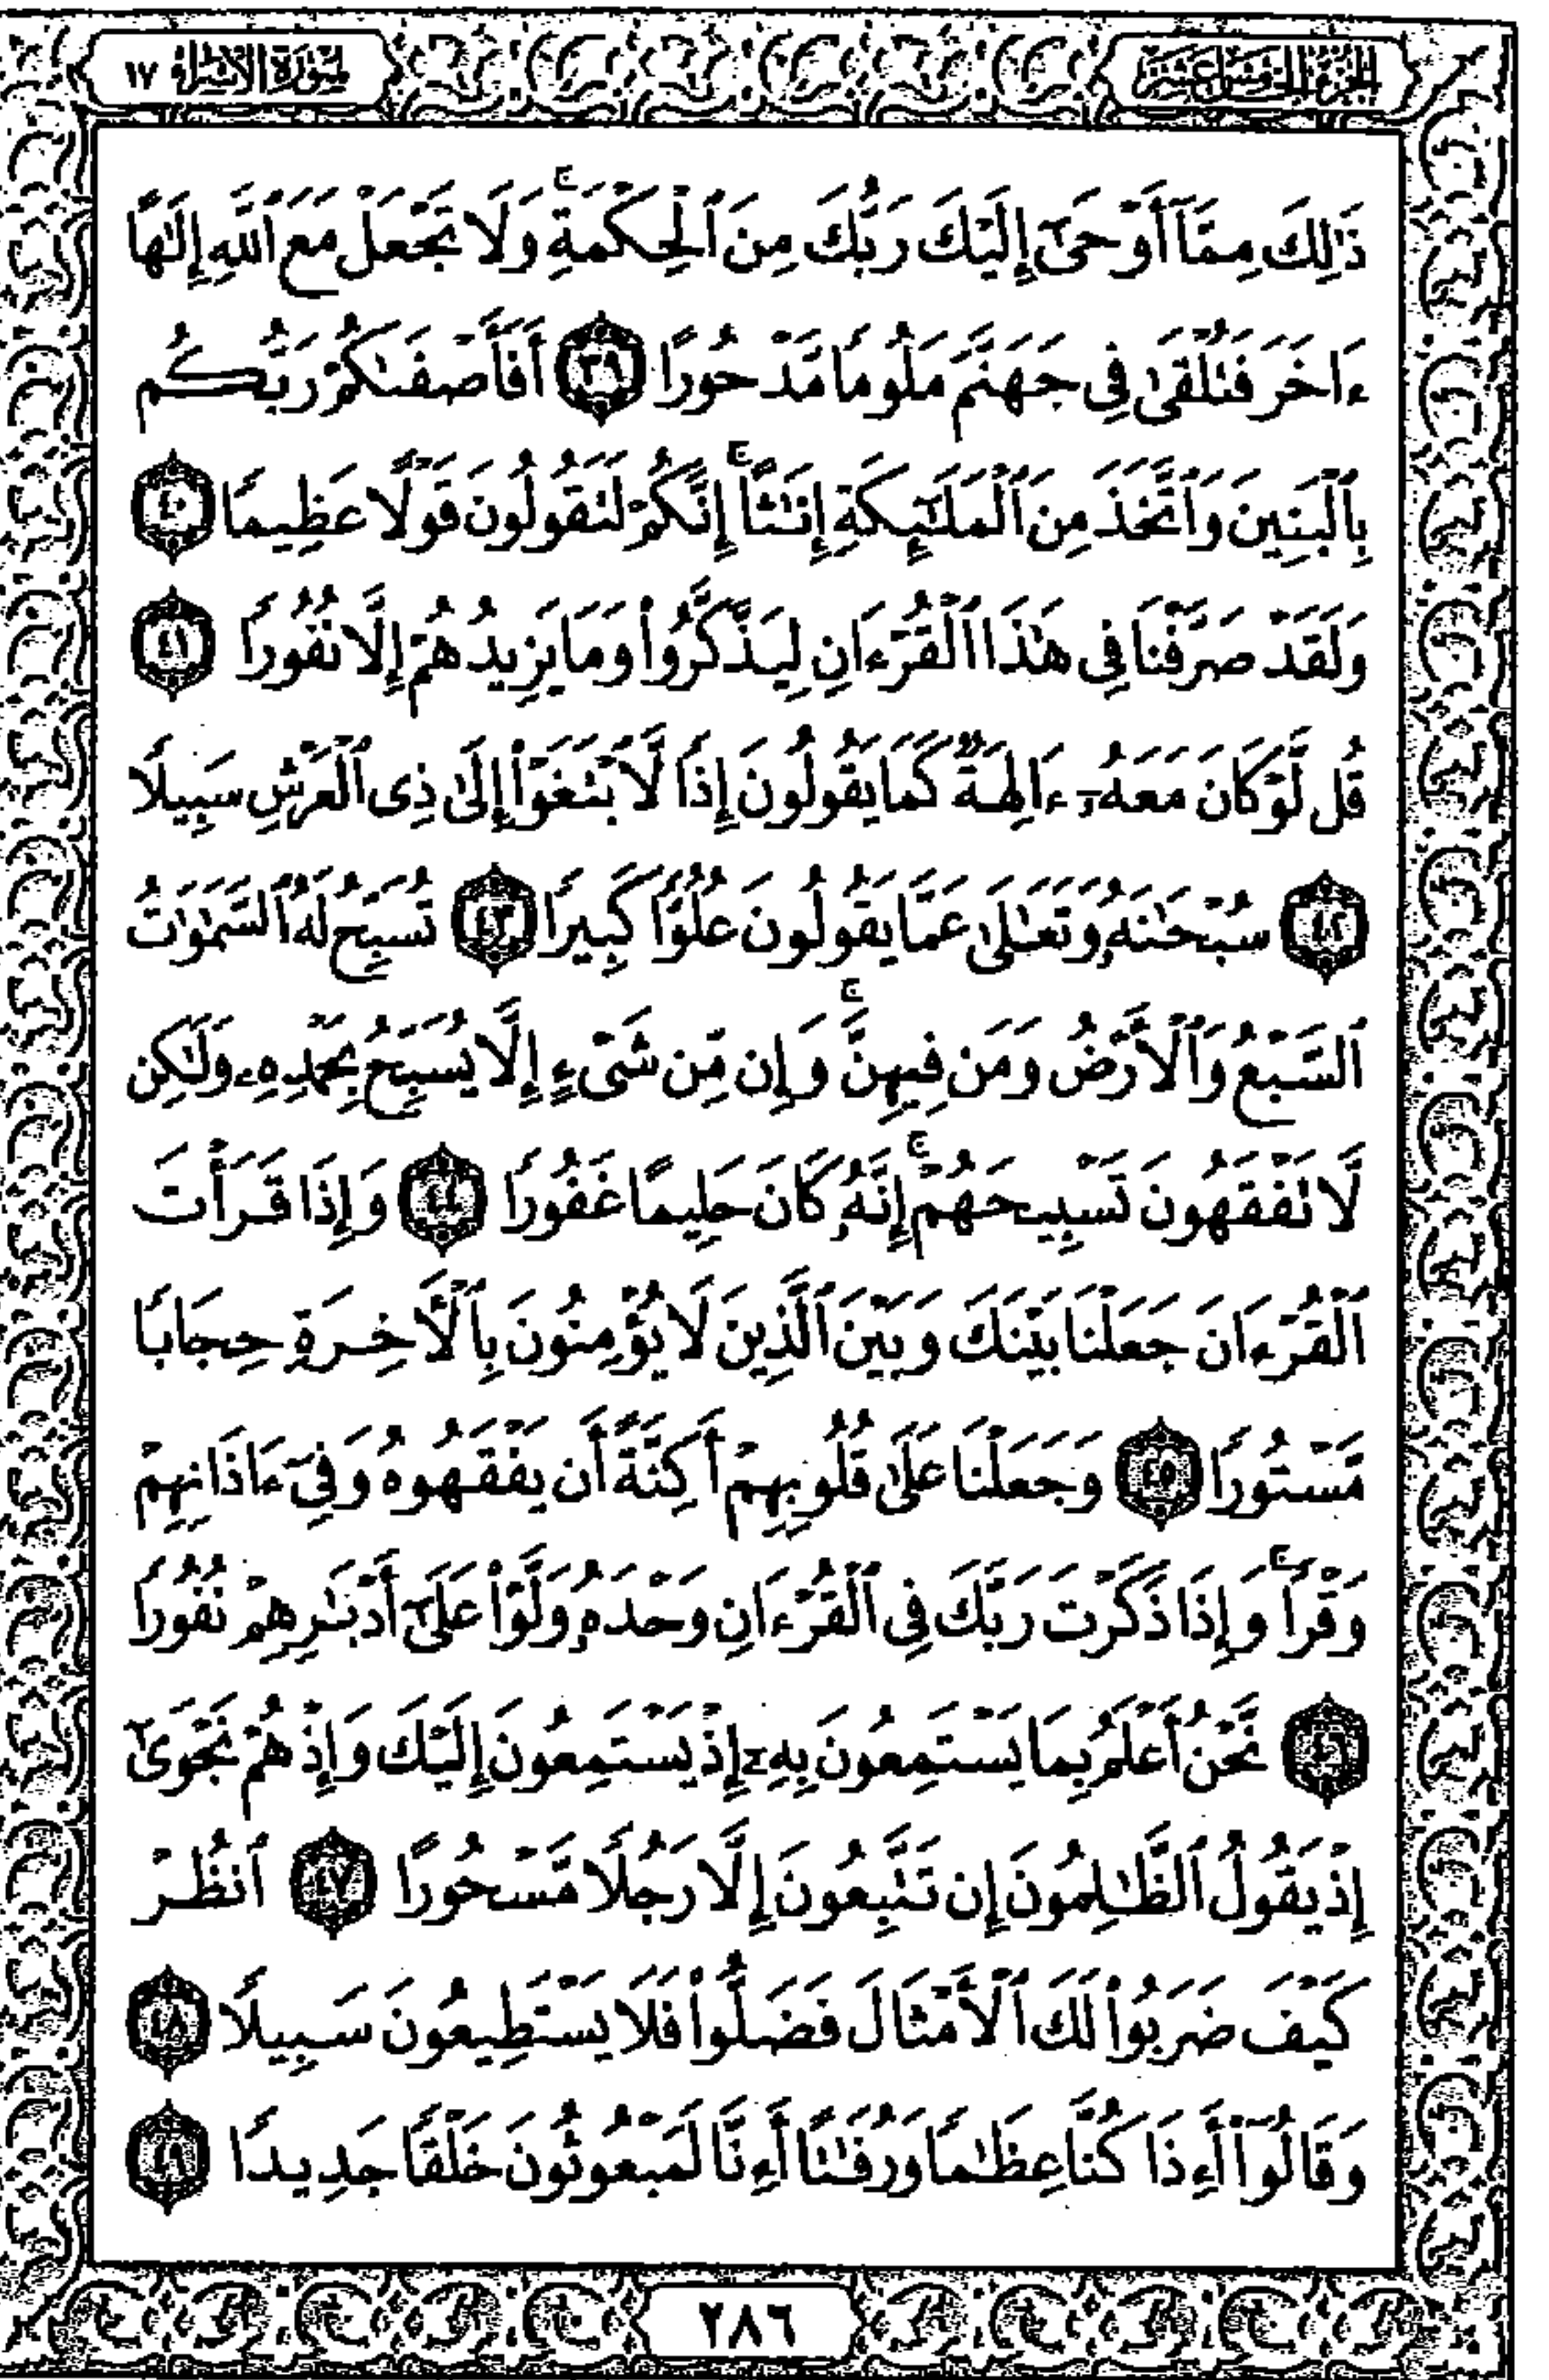 الجزء الخامس عشر
سورة الإسراء ١٧
ذَٰلِكَ مِمَّآ أَوْحَىٰٓ إِلَيْكَ رَبُّكَ مِنَ ٱلْحِكْمَةِ ۗ وَلَا تَجْعَلْ مَعَ ٱللَّهِ إِلَٰهًا
ءَاخَرَ فَتُلْقَىٰ فِى جَهَنَّمَ مَلُومًا مَّدْحُورًا ٣٩ أَفَأَصْفَىٰكُمْ رَبُّكُم
بِٱلْبَنِينَ وَٱتَّخَذَ مِنَ ٱلْمَلَٰٓئِكَةِ إِنَٰثًا ۚ إِنَّكُمْ لَتَقُولُونَ قَوْلًا عَظِيمًا ٤٠
وَلَقَدْ صَرَّفْنَا فِى هَٰذَا ٱلْقُرْءَانِ لِيَذَّكَّرُوا۟ وَمَا يَزِيدُهُمْ إِلَّا نُفُورًا ٤١
قُل لَّوْ كَانَ مَعَهُۥٓ ءَالِهَةٌ كَمَا يَقُولُونَ إِذًا لَّٱبْتَغَوْا۟ إِلَىٰ ذِى ٱلْعَرْشِ سَبِيلًا
٤٢ سُبْحَٰنَهُۥ وَتَعَٰلَىٰ عَمَّا يَقُولُونَ عُلُوًّا كَبِيرًا ٤٣ تُسَبِّحُ لَهُ ٱلسَّمَٰوَٰتُ
ٱلسَّبْعُ وَٱلْأَرْضُ وَمَن فِيهِنَّ ۚ وَإِن مِّن شَىْءٍ إِلَّا يُسَبِّحُ بِحَمْدِهِۦ وَلَٰكِن
لَّا تَفْقَهُونَ تَسْبِيحَهُمْ ۗ إِنَّهُۥ كَانَ حَلِيمًا غَفُورًا ٤٤ وَإِذَا قَرَأْتَ
ٱلْقُرْءَانَ جَعَلْنَا بَيْنَكَ وَبَيْنَ ٱلَّذِينَ لَا يُؤْمِنُونَ بِٱلْأَخِرَةِ حِجَابًا
مَّسْتُورًا ٤٥ وَجَعَلْنَا عَلَىٰ قُلُوبِهِمْ أَكِنَّةً أَن يَفْقَهُوهُ وَفِىٓ ءَاذَانِهِمْ
وَقْرًا ۚ وَإِذَا ذَكَرْتَ رَبَّكَ فِى ٱلْقُرْءَانِ وَحْدَهُۥ وَلَّوْا۟ عَلَىٰٓ أَدْبَٰرِهِمْ نُفُورًا
٤٦ نَّحْنُ أَعْلَمُ بِمَا يَسْتَمِعُونَ بِهِۦٓ إِذْ يَسْتَمِعُونَ إِلَيْكَ وَإِذْ هُمْ نَجْوَىٰٓ
إِذْ يَقُولُ ٱلظَّٰلِمُونَ إِن تَتَّبِعُونَ إِلَّا رَجُلًا مَّسْحُورًا ٤٧ ٱنظُرْ
كَيْفَ ضَرَبُوا۟ لَكَ ٱلْأَمْثَالَ فَضَلُّوا۟ فَلَا يَسْتَطِيعُونَ سَبِيلًا ٤٨
وَقَالُوٓا۟ أَءِذَا كُنَّا عِظَٰمًا وَرُفَٰتًا أَءِنَّا لَمَبْعُوثُونَ خَلْقًا جَدِيدًا ٤٩
٢٨٦